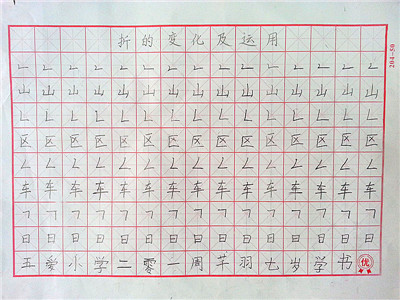 折的变化及运用
𠃊𠃊𠃊𠃊𠃊𠃊𠃊𠃊𠃊𠃊𠃊𠃊𠃊𠃊𠃊
山山山山山山山山山山山山山山山
𠃊𠃊𠃊𠃊𠃊𠃊𠃊𠃊𠃊𠃊𠃊𠃊𠃊𠃊𠃊
区区区区区区区区区区区区区区区
𠃋𠃋𠃋𠃋𠃋𠃋𠃋𠃋𠃋𠃋𠃋𠃋𠃋𠃋𠃋
车车车车车车车车车车车车车车车
𠃍𠃍𠃍𠃍𠃍𠃍𠃍𠃍𠃍𠃍𠃍𠃍𠃍𠃍𠃍
日日日日日日日日日日日日日日日
五爱小学二零一周芊羽岁学书
优